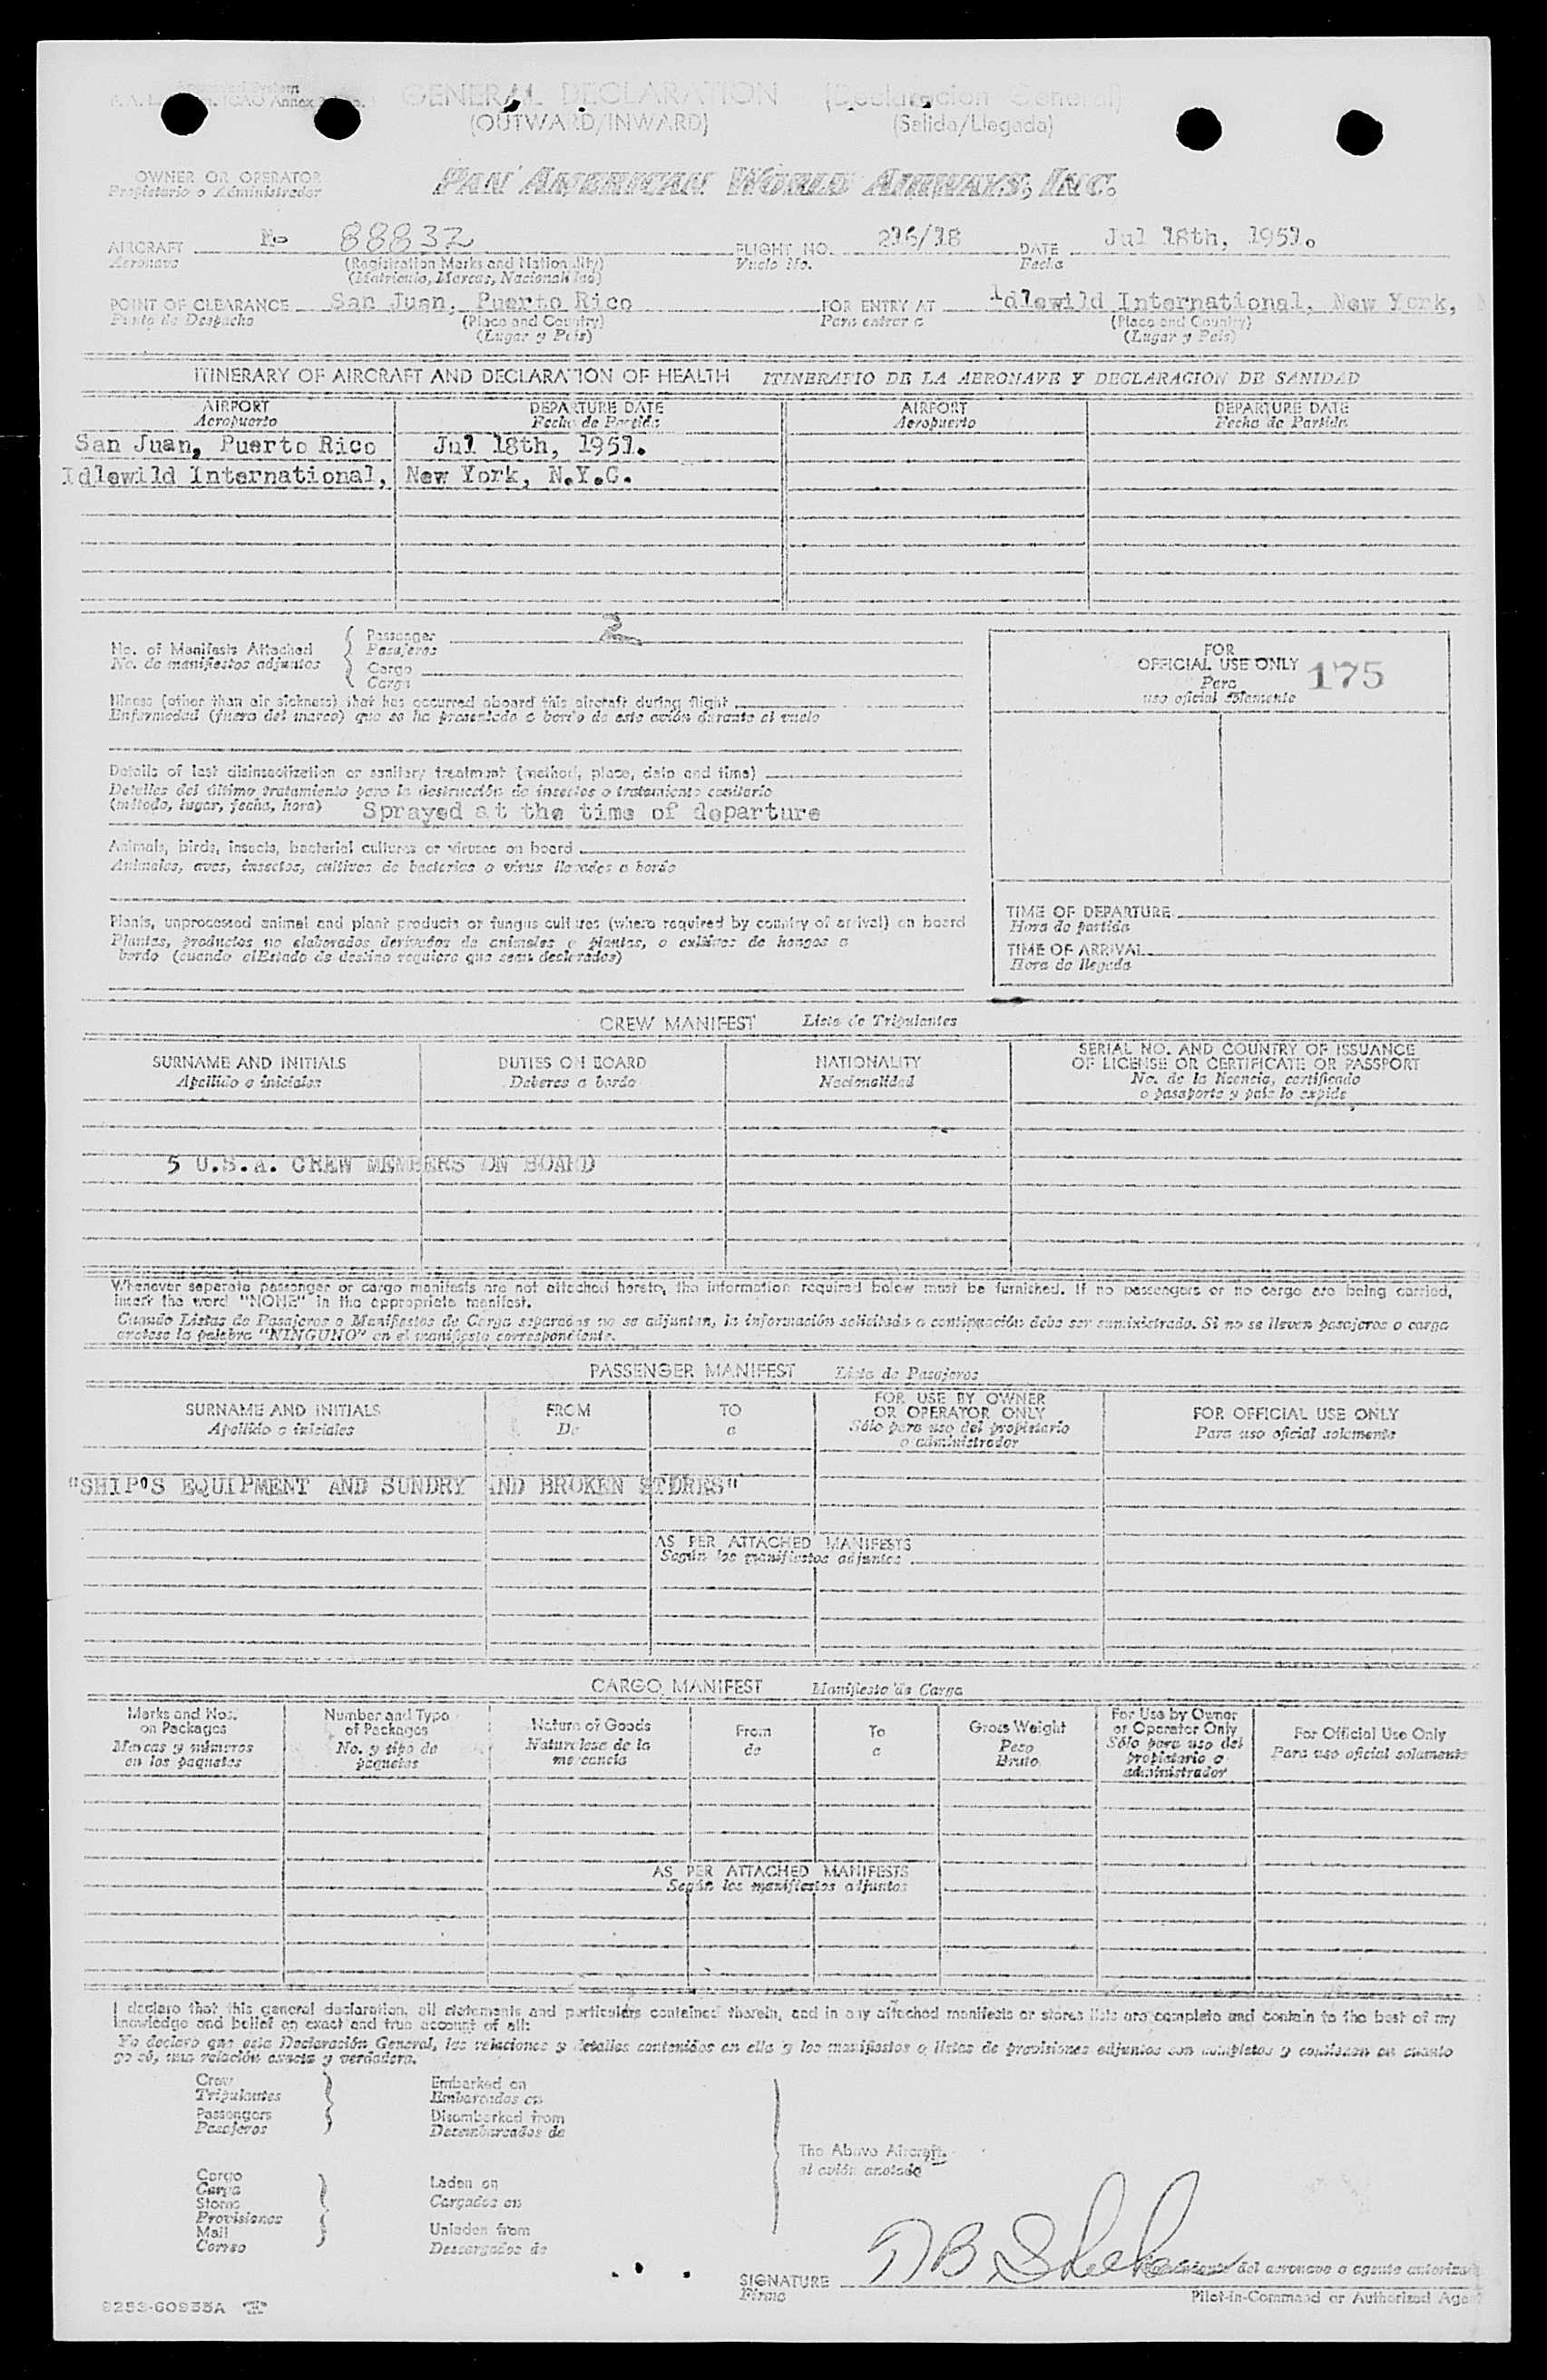 GENERAL DECLARATION (Declaracion General)
(OUTWARD/INWARD) (Salida/Llegada)
OWNER OR OPERATOR PAN AMERICAN WORLD AIRWAYS, INC.
Propietario o Administrador
AIRCRAFT No 88832 FLIGHT NO. 216/18 DATE Jul 18th, 1951.
Aeronave (Registration Marks and Nationality) Vuelo No. Fecha
(Matricula, Marcas, Nacionalidad)
POINT OF CLEARANCE San Juan, Puerto Rico FOR ENTRY AT Idlewild International, New York,
Punto de Despacho (Place and Country) Para entrar a (Place and Country)
(Lugar y Pais) (Lugar y Pais)
ITINERARY OF AIRCRAFT AND DECLARATION OF HEALTH ITINERARIO DE LA AERONAVE Y DECLARACION DE SANIDAD
AIRPORT DEPARTURE DATE AIRPORT DEPARTURE DATE
Aeropuerto Fecha de Partida Aeropuerto Fecha de Partida
San Juan, Puerto Rico Jul 18th, 1951.
Idlewild International, New York, N.Y.C.
No. of Manifests Attached Passenger 2
No. de manifiestos adjuntos Pasajeros
Cargo
Carga
FOR
OFFICIAL USE ONLY 175
Para
uso oficial solamente
Illness (other than air sickness) that has occurred aboard this aircraft during flight
Enfermedad (fuera del mareo) que se ha presentado a bordo de este avión durante el vuelo
Details of last disinsectization or sanitary treatment (method, place, date and time)
Detalles del último tratamiento para la destrucción de insectos o tratamiento sanitario
(método, lugar, fecha, hora) Sprayed at the time of departure
Animals, birds, insects, bacterial cultures or viruses on board
Animales, aves, insectos, cultivos de bacterias o virus llevados a bordo
Plants, unprocessed animal and plant products or fungus cultures (where required by country of arrival) on board
Plantas, productos no elaborados derivados de animales o plantas, o cultivos de hongos a
bordo (cuando el Estado de destino requiere que sean declarados)
TIME OF DEPARTURE
Hora de partida
TIME OF ARRIVAL
Hora de llegada
CREW MANIFEST Lista de Tripulantes
SURNAME AND INITIALS DUTIES ON BOARD NATIONALITY SERIAL NO. AND COUNTRY OF ISSUANCE
OF LICENSE OR CERTIFICATE OR PASSPORT
Apellido e iniciales Deberes a bordo Nacionalidad No. de la licencia, certificado
o pasaporte y país lo expide
5 U.S.A. CREW MEMBERS ON BOARD
Whenever separate passenger or cargo manifests are not attached hereto, the information required below must be furnished. If no passengers or no cargo are being carried,
insert the word "NONE" in the appropriate manifest.
Cuando Listas de Pasajeros o Manifiestos de Carga separados no se adjuntan, la información solicitada a continuación debe ser suministrada. Si no se llevan pasajeros o carga
anótese la palabra "NINGUNO" en el manifiesto correspondiente.
PASSENGER MANIFEST Lista de Pasajeros
SURNAME AND INITIALS FROM TO FOR USE BY OWNER
OR OPERATOR ONLY FOR OFFICIAL USE ONLY
Apellido e iniciales De a Sólo para uso del propietario
o administrador Para uso oficial solamente
"SHIP'S EQUIPMENT AND SUNDRY AND BROKEN STORES"
AS PER ATTACHED MANIFESTS
Según los manifiestos adjuntos
CARGO MANIFEST Manifiesto de Carga
Marks and Nos.
on Packages
Marcas y números
en los paquetes
Number and Type
of Packages
No. y tipo de
paquetes
Nature of Goods
Naturaleza de la
mercancía
From
de
To
a
Gross Weight
Peso
Bruto
For Use by Owner
or Operator Only
Sólo para uso del
propietario o
administrador
For Official Use Only
Para uso oficial solamente
AS PER ATTACHED MANIFESTS
Según los manifiestos adjuntos
I declare that this general declaration, all statements and particulars contained therein, and in any attached manifests or stores lists are complete and contain to the best of my
knowledge and belief an exact and true account of all:
Yo declaro que esta Declaración General, las relaciones y detalles contenidos en ella y los manifiestos o listas de provisiones adjuntos son completos y contienen en cuanto
yo sé, una relación exacta y verdadera.
Crew
Tripulantes
Passengers
Pasajeros
Embarked on
Embarcados en
Disembarked from
Desembarcados de
The Above Aircraft.
el avión anotado
Cargo
Carga
Stores
Provisiones
Mail
Correo
Laden on
Cargados en
Unladen from
Descargados de
SIGNATURE
Firma
del aeronave o agente
Pilot-in-Command or Authorized Agent
8253-60955A